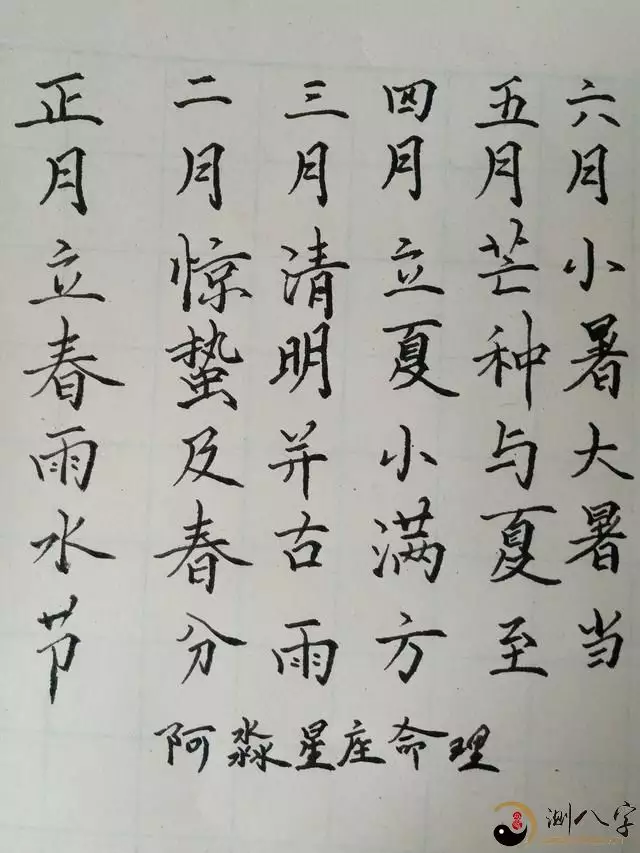 正月立春雨水节
二月惊蛰及春分
三月清明并古雨
四月立夏小满方
五月芒种与夏至
六月小暑大暑当
阿淼星座命理
测八字